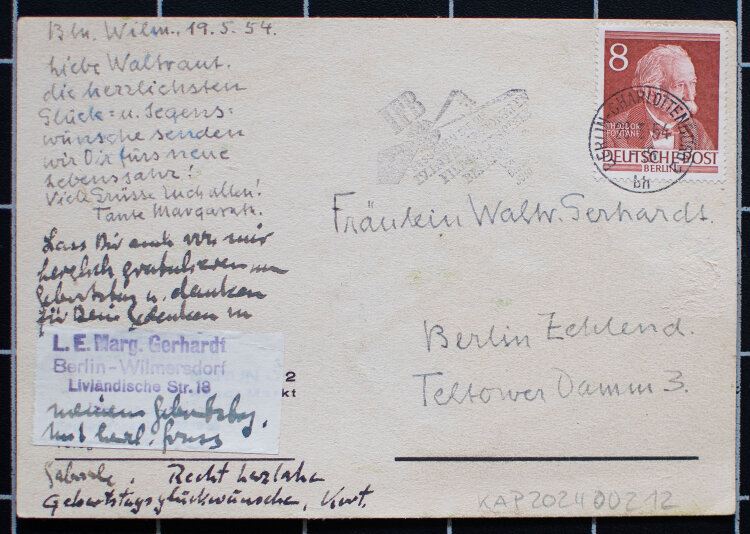 Bln. Wilm., 19.5.54.
Liebe Waltraut.
die herzlichsten
Glück= u. Segens=
wünsche senden
wir Dir fürs neue
Lebensjahr!
Viele Grüsse Euch allen!
Tante Margarete.
Lass Dir auch von mir
herzlich gratulieren zum
Geburtstag u. danken
für Dein Gedenken zu
L. E. Marg. Gerhardt
Berlin-Wilmersdorf
Livländische Str. 18
meinem Geburtstag.
Mit herzl. Gruss
Recht herzliche
Geburtstagsglückwünsche, Kurt.
2
kt
8
THEODOR
FONTANE
DEUTSCHE POST
BERLIN
BERLIN-CHARLOTTENBURG
54
bh
Fräulein Waltr. Gerhardt.
Berlin Zehlend.
Teltower Damm 3.
KAP202400212